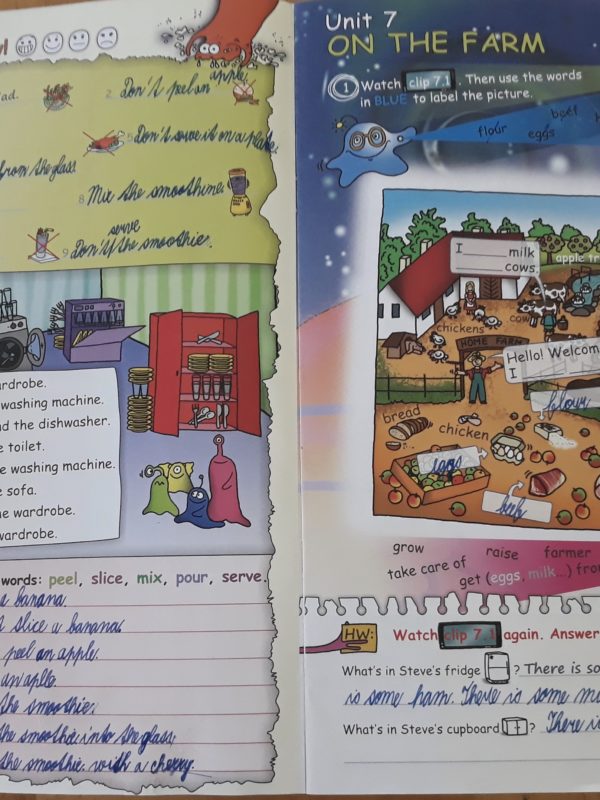 ad.
2. Don't peel an apple.
5 Don't serve it on a plate
from the glass
8 Mix the smoothime
serve
9 Don't the smoothie.
ardrobe.
washing machine.
nd the dishwasher.
e toilet.
e washing machine.
e sofa.
he wardrobe.
wardrobe.
words: peel, slice, mix, pour, serve.
a banana.
slice a banana
peel an apple.
an aple
the smoothie.
the smoothie into the glass
the smoothie with a cherry.
Unit 7
ON THE FARM
1 Watch clip 7.1. Then use the words
in BLUE to label the picture.
flour eggs beef
I ______ milk
______ cows.
apple tr
chickens
cow
HOME FARM
Hello! Welcom
I
flour
bread
chicken
eggs
beef
grow raise farmer
take care of get (eggs, milk...) from
HW: Watch clip 7.1 again. Answer
What's in Steve's fridge ? There is so
is some ham. There is some m
What's in Steve's cupboard ? There is